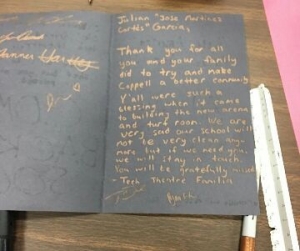 Julian "Jose Martinez
Curtis" Garcia,
Thank you for all
you and your family
did to try and make
Coppell a better community
Y'all were such a
blessing when it came
to building the new arena
and turf room. We are
very sad our school will
not be very clean any-
more but if we need you
we will stay in touch.
You will be gratefully missed
- Tech Theatre Familia